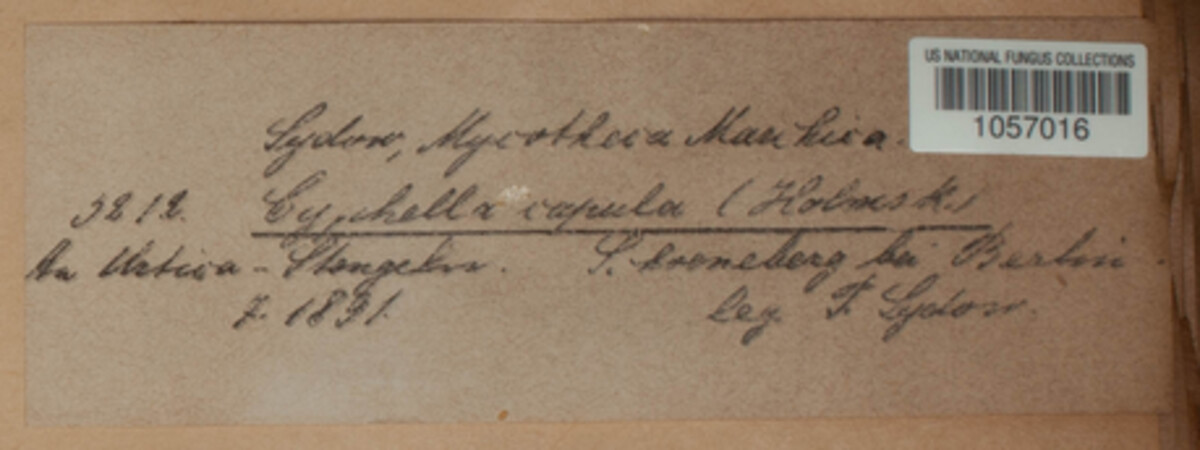 US NATIONAL FUNGUS COLLECTIONS
1057016
Sydow, Mycotheca Marchica.
3212. Cyphella capula (Holmsk.)
An Urtica-Stengeln. bei Berlin.
7. 1891. leg. P. Sydow.